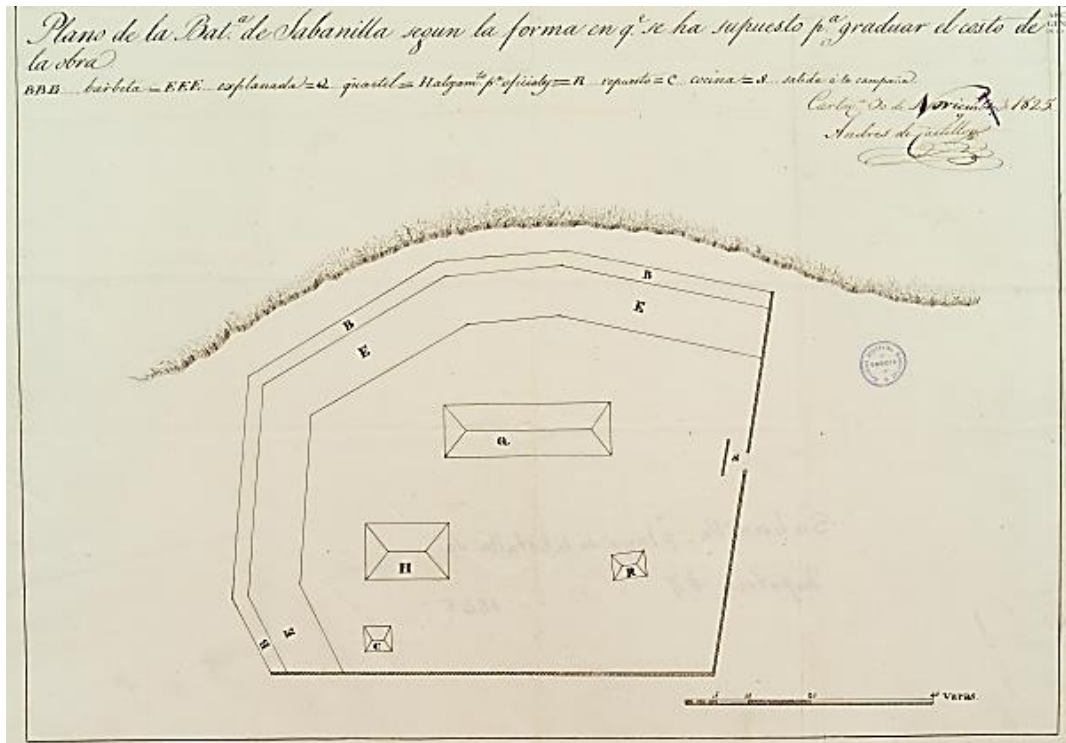 Plano de la Bat.ª de Sabanilla segun la forma en q.e se ha supuesto p.ª graduar el costo de
la obra
BBB barbeta = EEE esplanada = Q quartel = H alojam.to p.ª oficiales = R repuesto = C cocina = S salida á la campaña
Cartag.ª 30 de Noviembre 1825
Andres de Castillo
B
B
E
E
Q
S
H
R
B
E
C
5
10
20
40 Varas